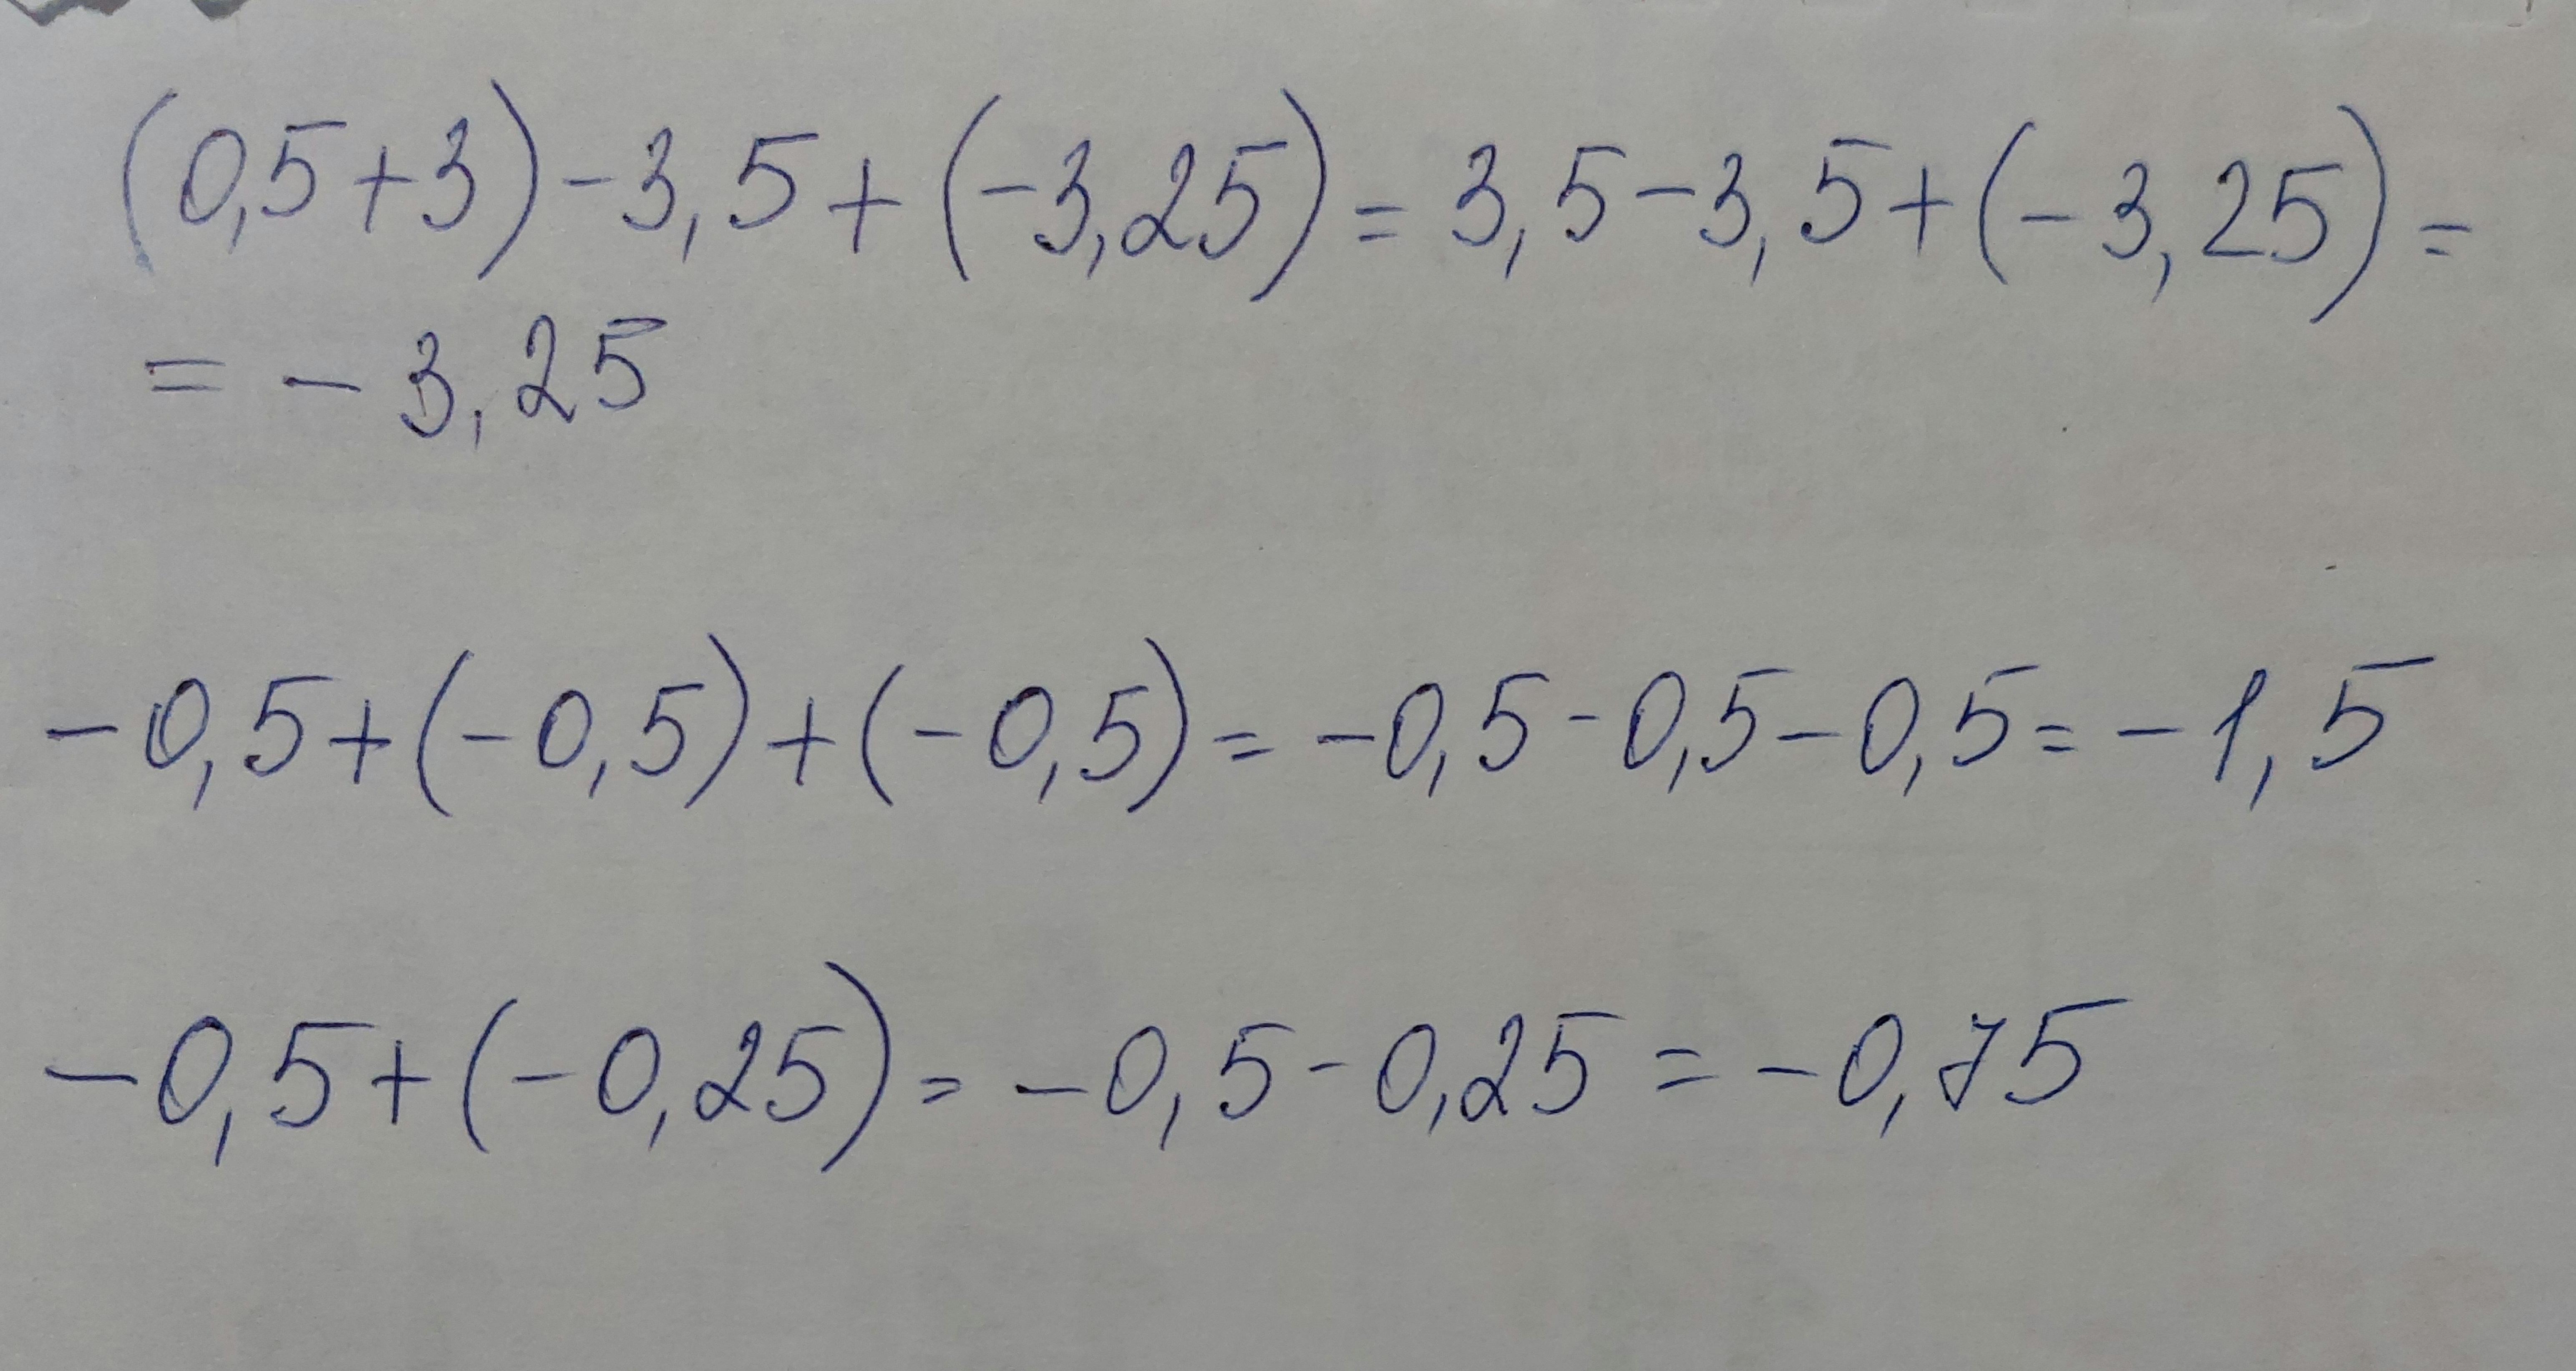 (0,5+3)-3,5+(-3,25)=3,5-3,5+(-3,25)=
=-3,25
-0,5+(-0,5)+(-0,5)=-0,5-0,5-0,5=-1,5
-0,5+(-0,25)=-0,5-0,25=-0,75